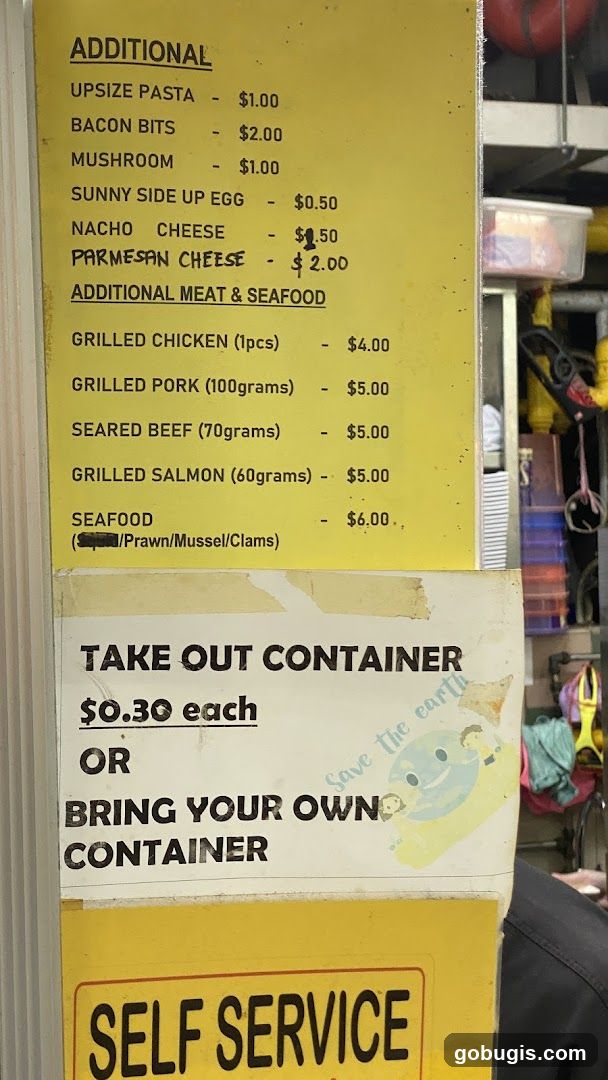 ADDITIONAL
UPSIZE PASTA - $1.00
BACON BITS - $2.00
MUSHROOM - $1.00
SUNNY SIDE UP EGG - $0.50
NACHO CHEESE - $1.50
PARMESAN CHEESE - $2.00
ADDITIONAL MEAT & SEAFOOD
GRILLED CHICKEN (1pcs) - $4.00
GRILLED PORK (100grams) - $5.00
SEARED BEEF (70grams) - $5.00
GRILLED SALMON (60grams) - $5.00
SEAFOOD - $6.00
(/Prawn/Mussel/Clams)
TAKE OUT CONTAINER
$0.30 each
OR
BRING YOUR OWN
CONTAINER
Save the earth
SELF SERVICE
gobugis.com